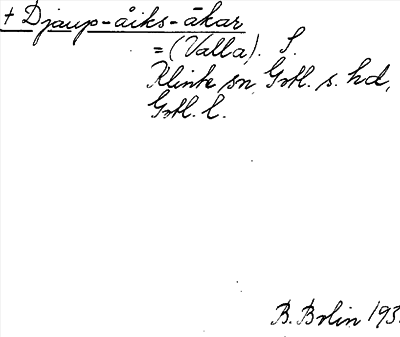 + Djaup-åiks-åkar
= (Valla). S.
Klinte sn, Gotl. s. hd,
Gotl. l.
B. Bolin 193